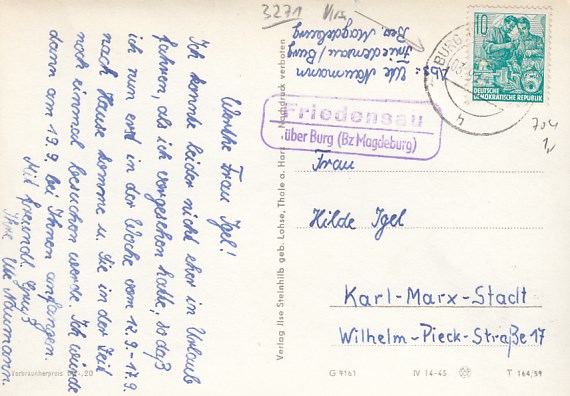 3271
Abs: Ute Naumann
Friedensau / Burg
Bez. Magdeburg
Werthe Frau Igel!
Ich konnte leider nicht eher in Urlaub
fahren, als ich vorgesehen hatte, so daß
ich nun erst in der Woche vom 12.9.-17.9.
nach Hause komme u. Sie in der Zeit
noch einmal besuchen werde. Ich würde
dann am 13.9. bei Ihnen anfangen.
Mit freundl. Gruß
Ihre Ute Naumann.
BURG
10
DEUTSCHE
DEMOKRATISCHE REPUBLIK
h
Friedensau
über Burg (Bz Magdeburg)
Frau
Hilde Igel
Karl-Marx-Stadt
Wilhelm-Pieck-Straße 17
Verlag Ilse Steinhilb geb. Lohse, Thale a. Harz - Nachdruck verboten
Verbraucherpreis -,20
G 9161
IV 14-45
T 164/59